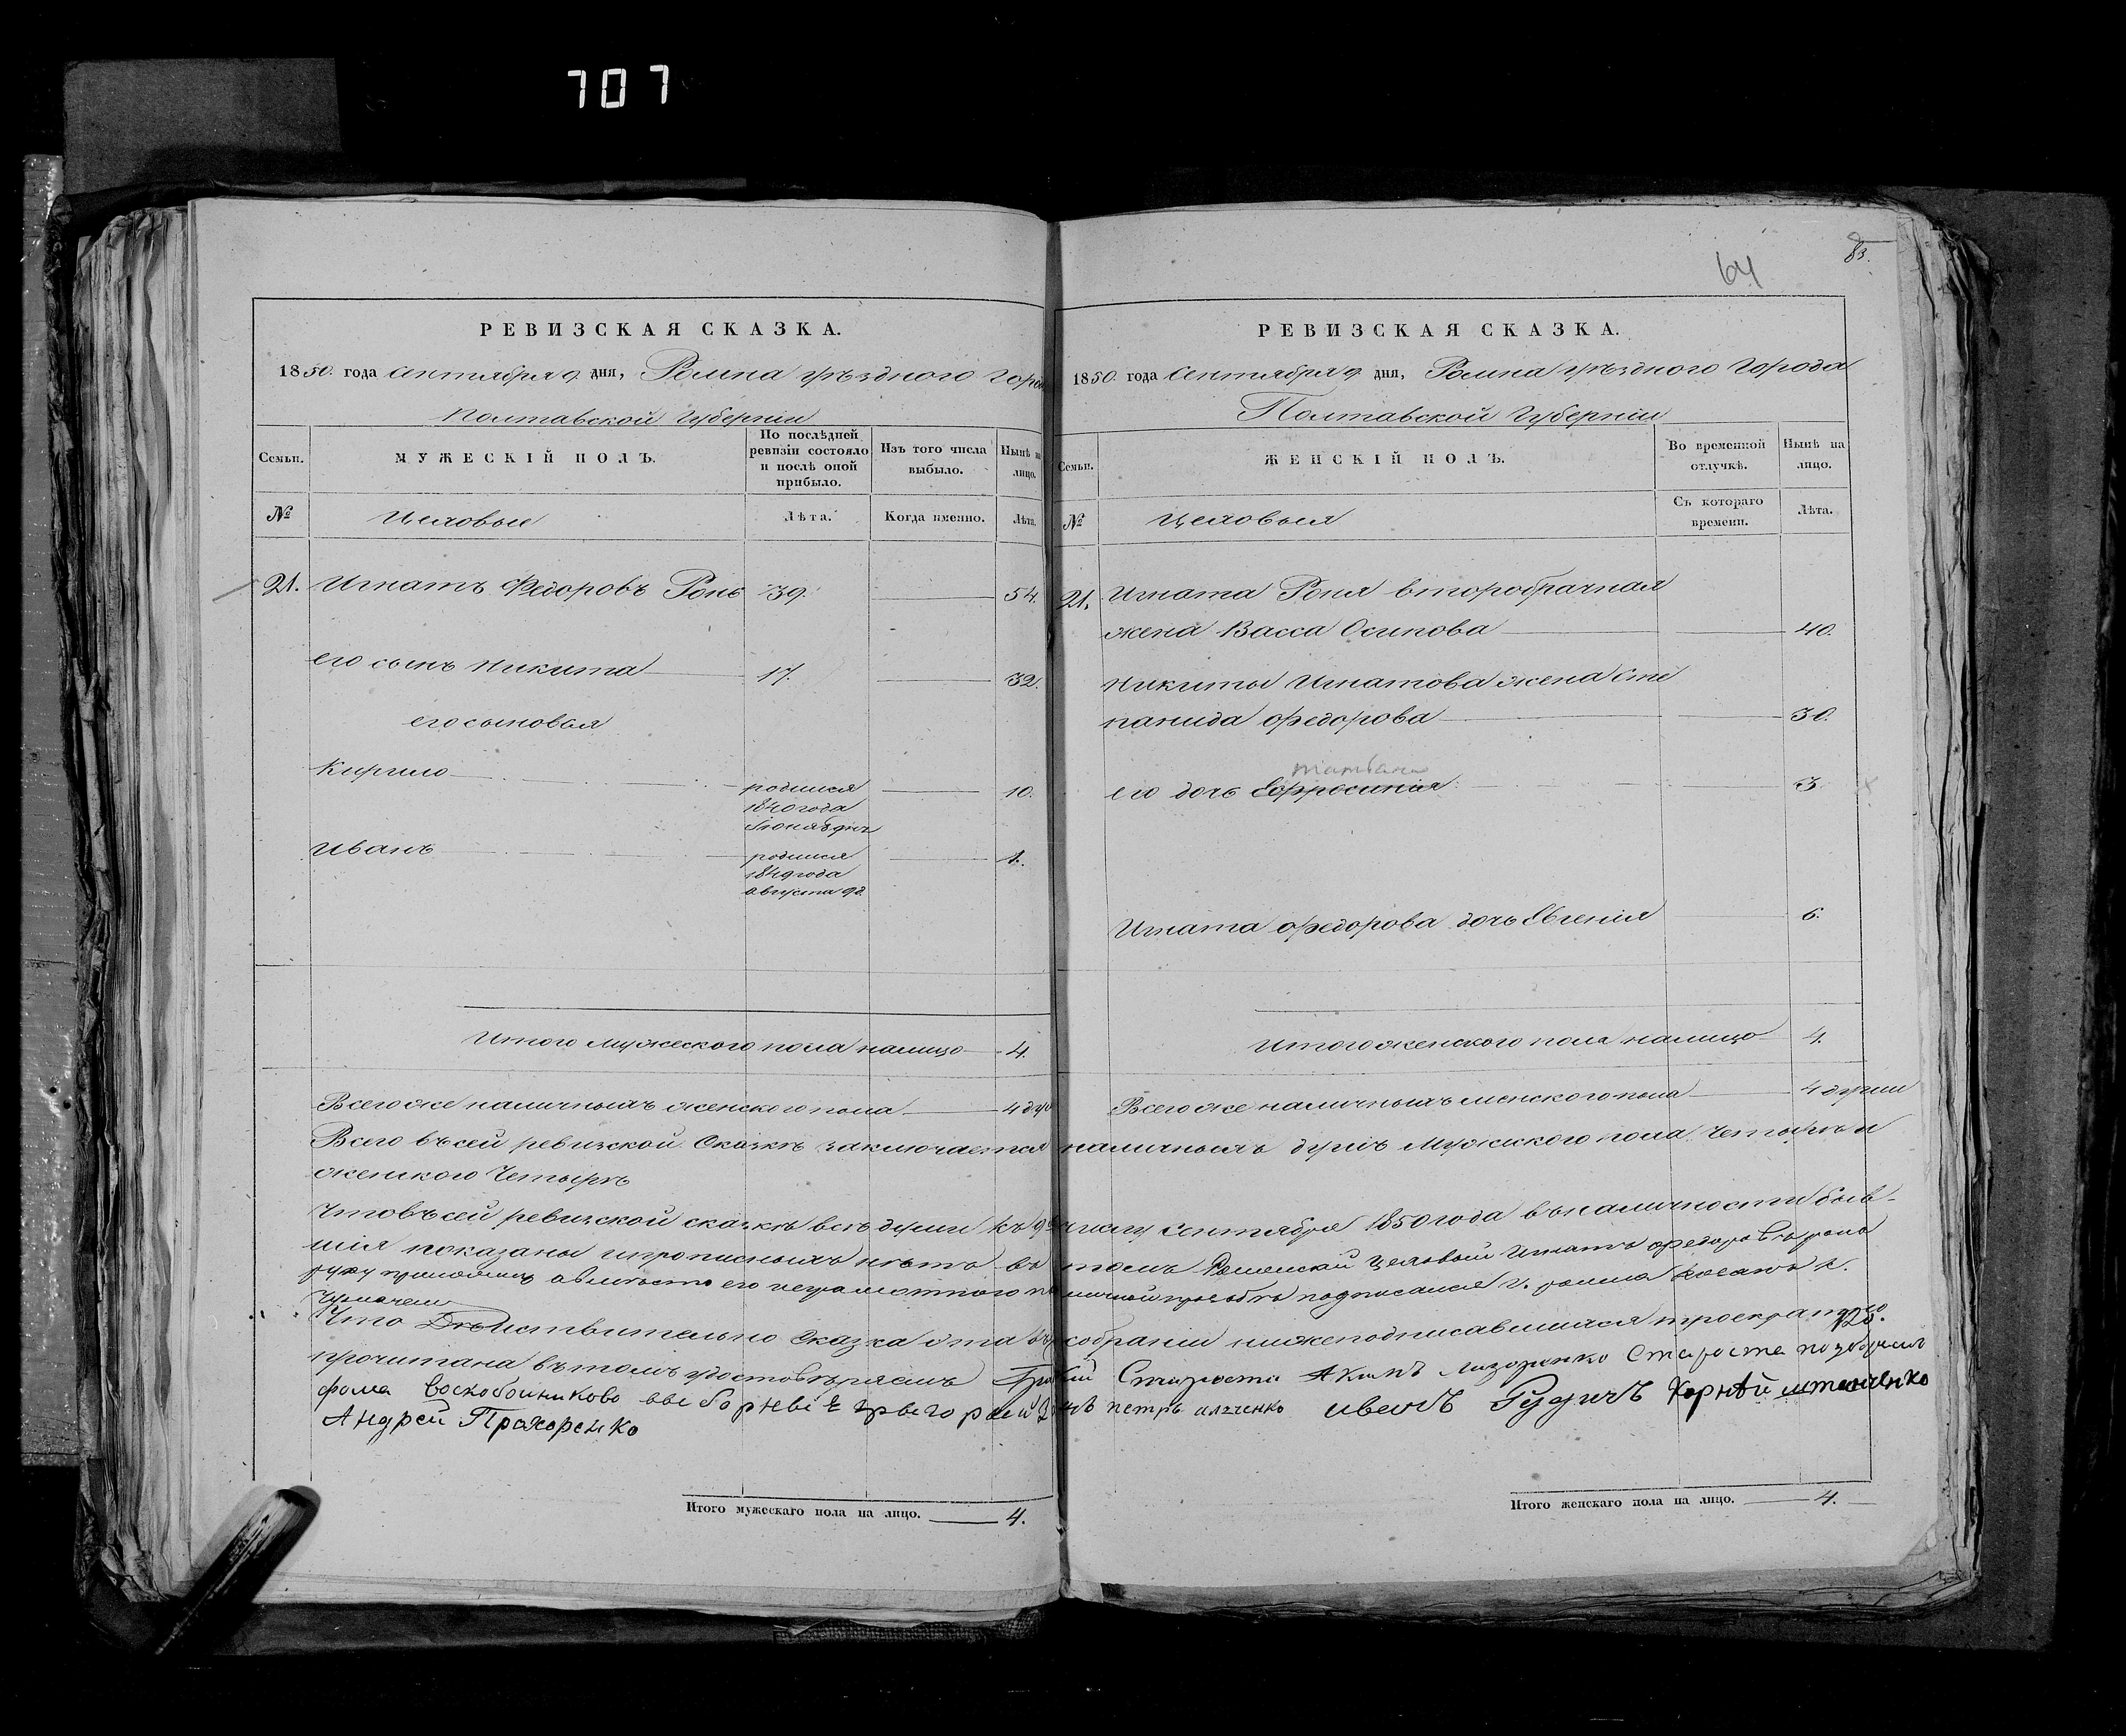 707
64
83.
РЕВИЗСКАЯ СКАЗКА.
1850. года Сентября 9. дня, Ромна уѣздного горо
Полтавской Губерніи
Семьи.
МУЖЕСКІЙ ПОЛЪ.
По послѣдней ревизіи состояло и послѣ оной прибыло.
Изъ того числа выбыло.
Нынѣ на лицо.
№
Цеховые
Лѣта.
Когда именно.
Лѣта.
21. Игнатъ Федоровъ Ронь 39. 54.
его сынъ Никита 17. 32.
его сыновья
Кирило родился 10.
1840 года
Іюня 8 дня
Иванъ родился 1.
1849 года
августа 9 д.
Итого мужеского пола налицо 4.
Всего же наличныхъ женского пола 4 ду
РЕВИЗСКАЯ СКАЗКА.
1850. года Сентября 9. дня, Ромна уѣздного Города
Полтавской Губерніи
Семьи.
ЖЕНСКІЙ ПОЛЪ.
Во временной отлучкѣ.
Нынѣ на лицо.
№
Цеховыя
Съ котораго времени.
Лѣта.
21. Игната Роня второбрачная
жена Васса Осипова 40.
Никиты Игнатова жена Сте
панида Федорова 30.
его дочь Ефросинія 3
Игната Федорова дочь Евгенія 6.
Итого женского пола налицо 4.
Всего же наличныхъ женского пола 4 души
Всего въ сей ревизской Сказкѣ заключается наличныхъ душъ Мужского пола Четыре и
женского Четыре
Что въ сей ревизской сказкѣ всѣ души къ 9 числу Сентября 1850 года въ наличности быв-
шія показаны и прописныхъ нѣтъ въ томъ Роменскій Цеховый Игнатъ Федоровъ Ронь
а вмѣсто его неграмотного по личной прозбѣ подписался
Что Действительно Сказка эта въ собраніи нижеподписавшимися троекратно
прочитана въ томъ удостовѣряемъ Староста Акимъ Староста
Фома Воскобойниково Петръ Иванъ Рудичъ Корнѣй
Андрей Прохоренко
Итого мужескаго пола на лицо. 4.
Итого женскаго пола на лицо. 4.